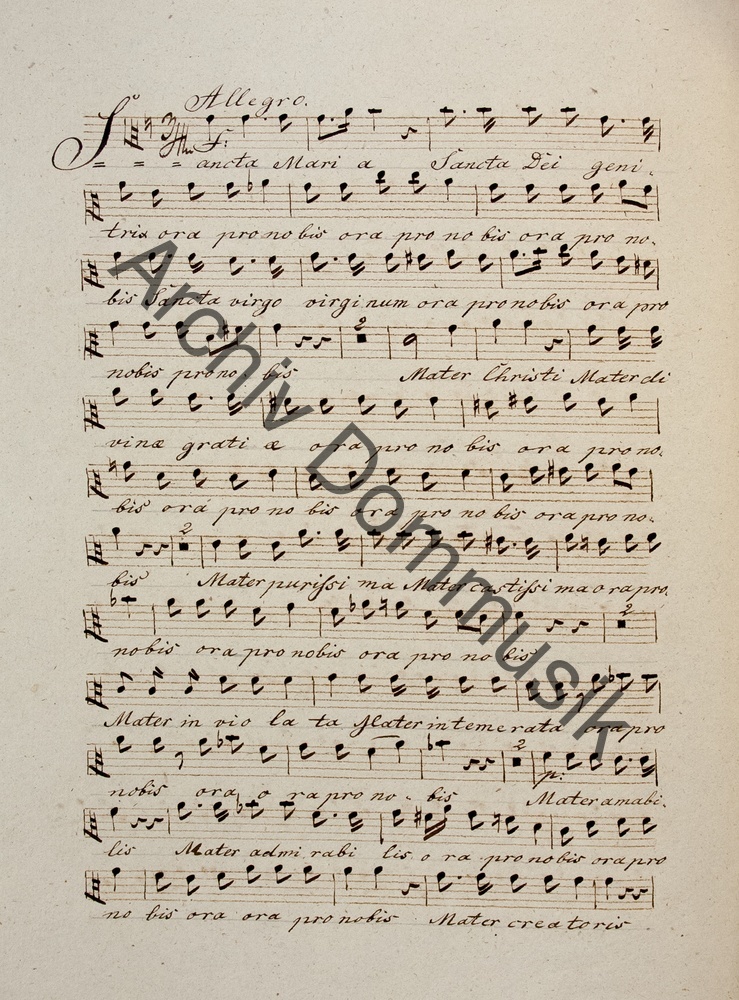 Allegro.
So
F:
Sancta Mari a Sancta Dei geni-
trix ora pro nobis ora pro no bis ora pro no-
bis Sancta virgo virginum ora pro nobis ora pro
nobis pro no bis Mater Christi Mater di
2
vinæ grati æ ora pro no bis ora pro no-
bis ora pro no bis ora pro no bis ora pro no-
2
bis Mater purissi ma Mater castissi ma ora pro
nobis ora pro nobis ora pro no bis
2
Mater in vio la ta Mater intemerata ora pro
2
p:
nobis ora o ra pro no - bis Mater amabi-
lis Mater admi rabi lis o ra pro nobis ora pro
no bis ora ora pro nobis Mater creatoris
Archiv Dommusik